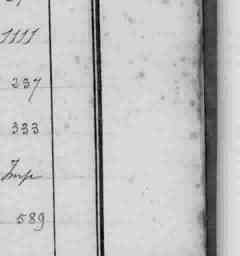 1111
237
333
Imp
589